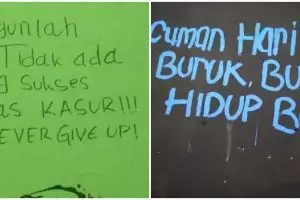 gunlah
Tidak ada
g Sukses
as KASUR!!!
EVER GIVE UP!
Cuman Hari
BURUK, BU
HIDUP B